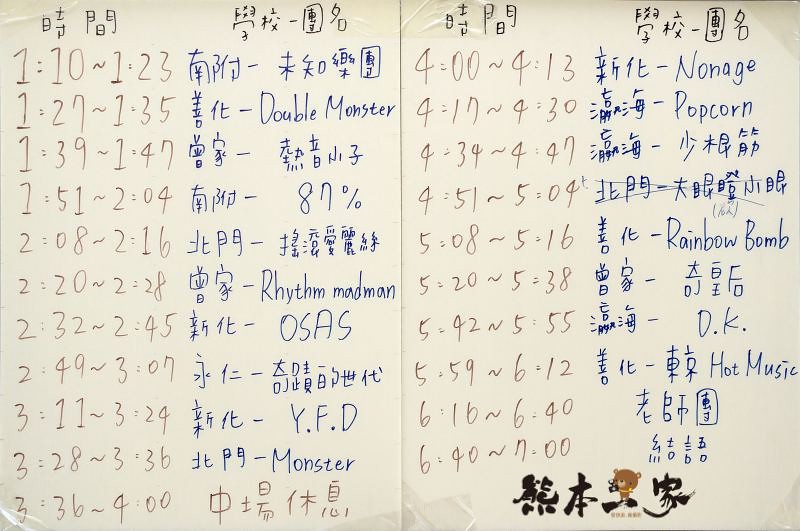 時間 學校-團名
1:10~1:23 南附- 未知樂團
1:27~1:35 善化-Double Monster
1:39~1:47 曾家- 熱音小子
1:51~2:04 南附- 87%
2:08~2:16 北門-搖滾愛麗絲
2:20~2:28 曾家-Rhythm madman
2:32~2:45 新化- OSAS
2:49~3:07 永仁-奇蹟的世代
3:11~3:24 新化- Y.F.D
3:28~3:36 北門-Monster
3:36~4:00 中場休息
時間 學校-團名
4:00~4:13 新化-Nonage
4:17~4:30 瀛海-Popcorn
4:34~4:47 瀛海-少根筋
4:51~5:04 北門-大眼瞪小眼
5:08~5:16 善化-Rainbow Bomb
5:20~5:38 曾家- 奇皇后
5:42~5:55 瀛海- D.K.
5:59~6:12 善化-東京 Hot Music
6:16~6:40 老師團
6:40~7:00 結語
熊本一家